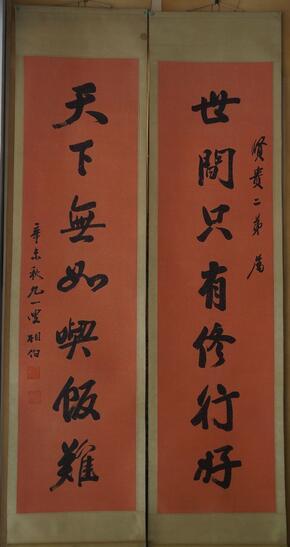 世間只有修行好
賢貴二弟屬
天下無如喫飯難
辛未秋九一叟相伯